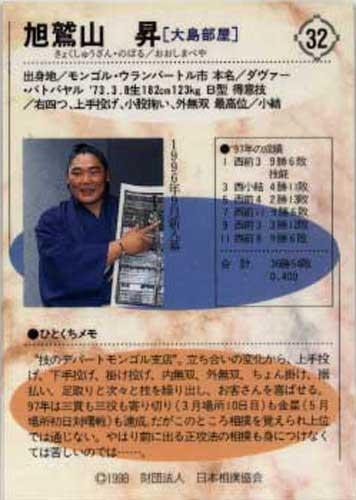 旭鷲山 昇[大島部屋]
きょくしゅうざん・のぼる/おおしまべや
32
出身地/モンゴル・ウランバートル市 本名/ダヴァー
・バトバヤル '73.3.8生182cm123kg B型 得意技
/右四つ、上手投げ、小股掬い、外無双 最高位/小結
1996年9月新入幕
●'97年の成績
1 西前3 9勝6敗
技能
3 西小結 4勝11敗
5 西前4 2勝13敗
7 西前11 9勝6敗
9 西前3
11 西前8 9勝6敗
合計 36勝54敗
0.400
●ひとくちメモ
“技のデパートモンゴル支店”。立ち合いの変化から、上手投
げ、下手投げ、掛け投げ、内無双、外無双、ちょん掛け、掴
払い、足取りと次々と技を繰り出し、お客さんを喜ばせる。
97年は三賞も三役も寄り切り(3月場所10日目)も金星(5月
場所初日対曙戦)も達成。だがこのところ相撲を覚えられ上位
では通じない。やはり前に出る正攻法の相撲も身につけなく
ては苦しいのでは……。
©1998 財団法人 日本相撲協会